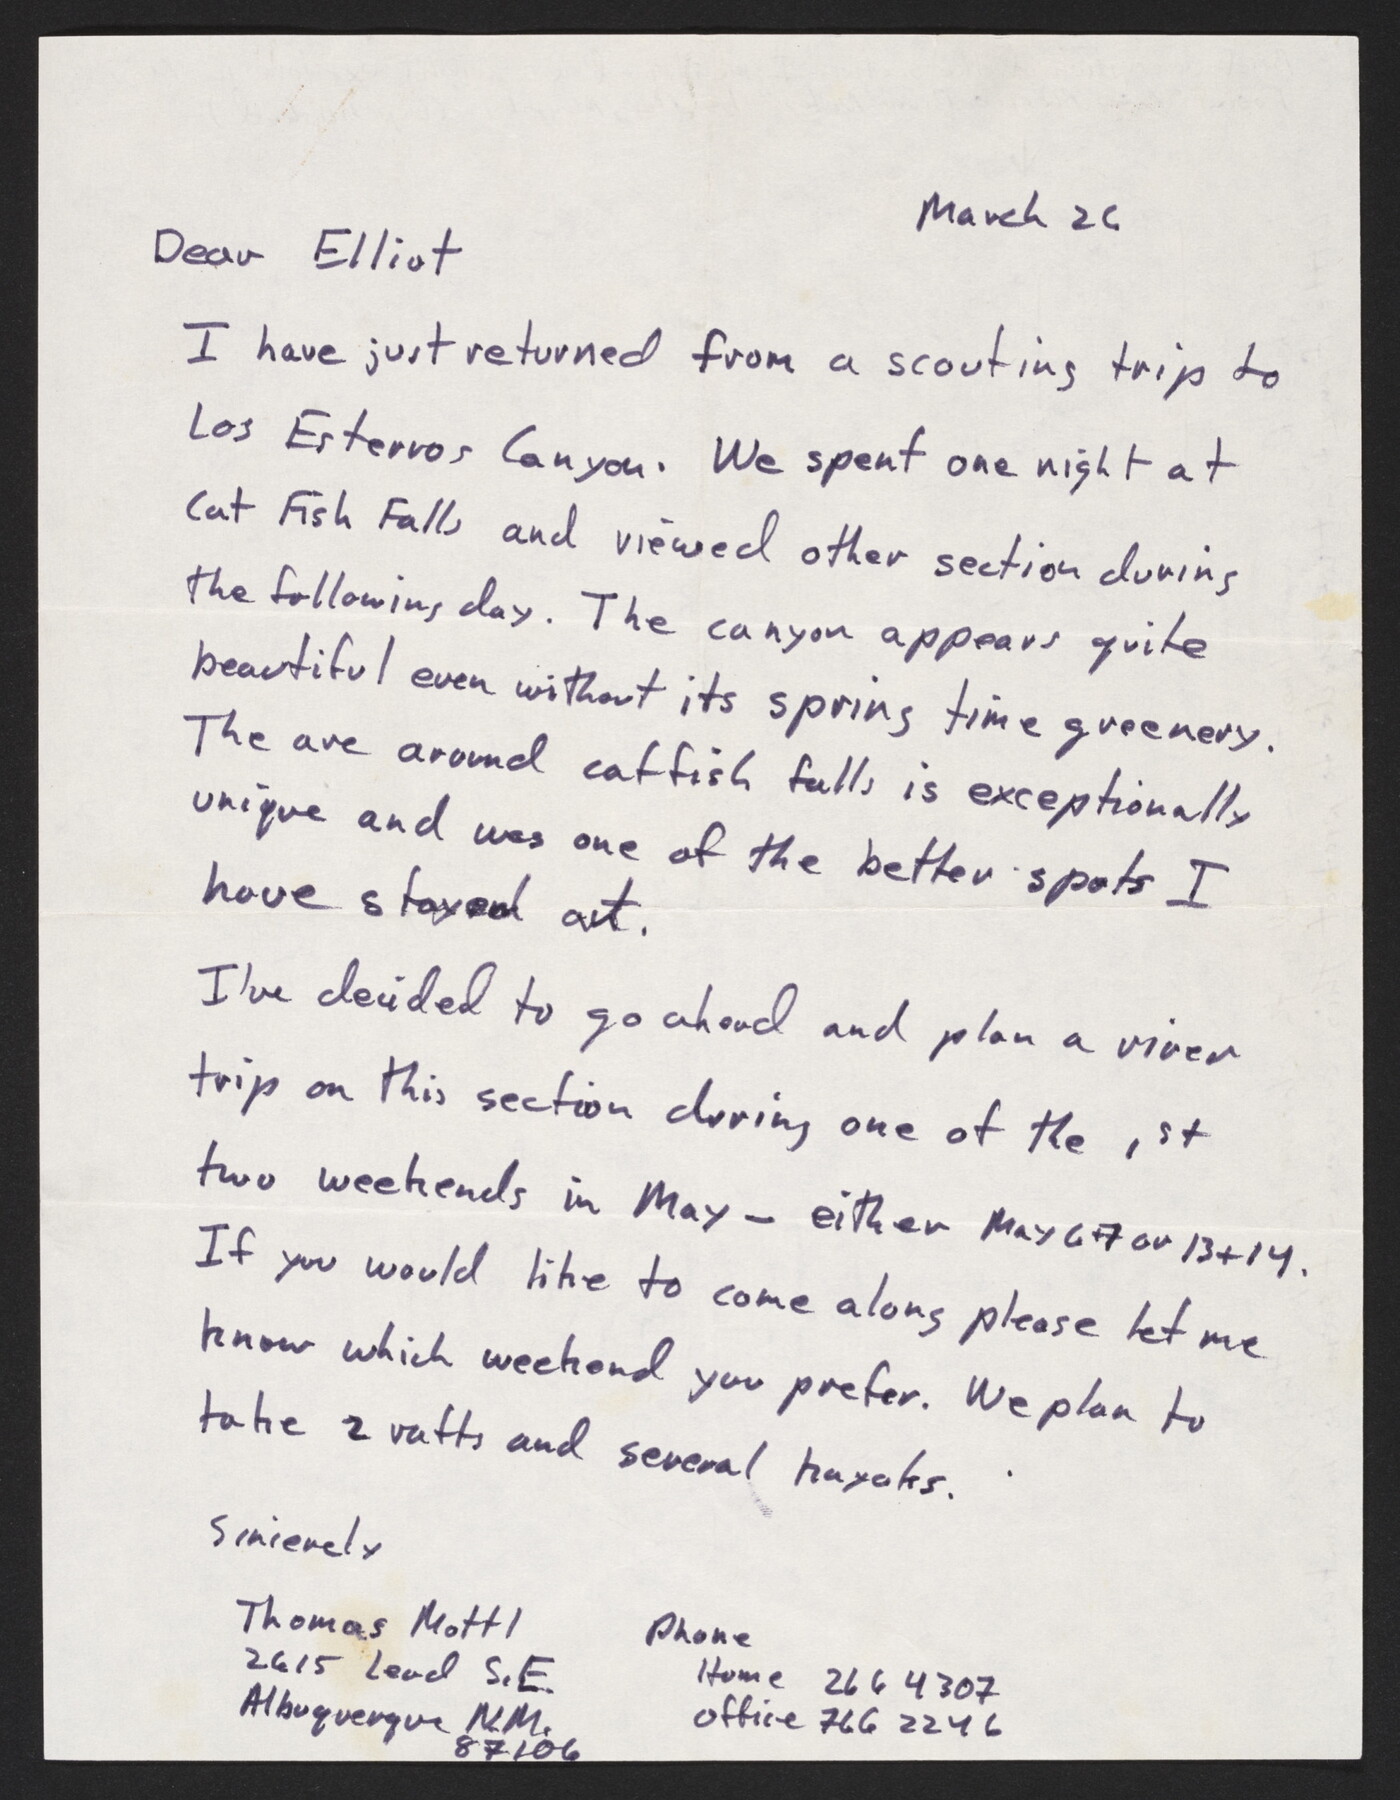 March 26
Dear Elliot
I have just returned from a scouting trip to
Los Esterros Canyon. We spent one night at
Cat Fish Falls and viewed other section during
the following day. The canyon appears quite
beautiful even without its spring time greenery.
The are around catfish falls is exceptionally
unique and was one of the better spots I
have stayed at.
I've decided to go ahead and plan a river
trip on this section during one of the 1st
two weekends in May - either May 6+7 or 13+14.
If you would like to come along please let me
know which weekend you prefer. We plan to
take 2 rafts and several kayaks.
Sincerely
Thomas Mottl
2615 Lead S.E.
Albuquerque N.M.
87106
Phone
Home 266 4307
office 766 2246